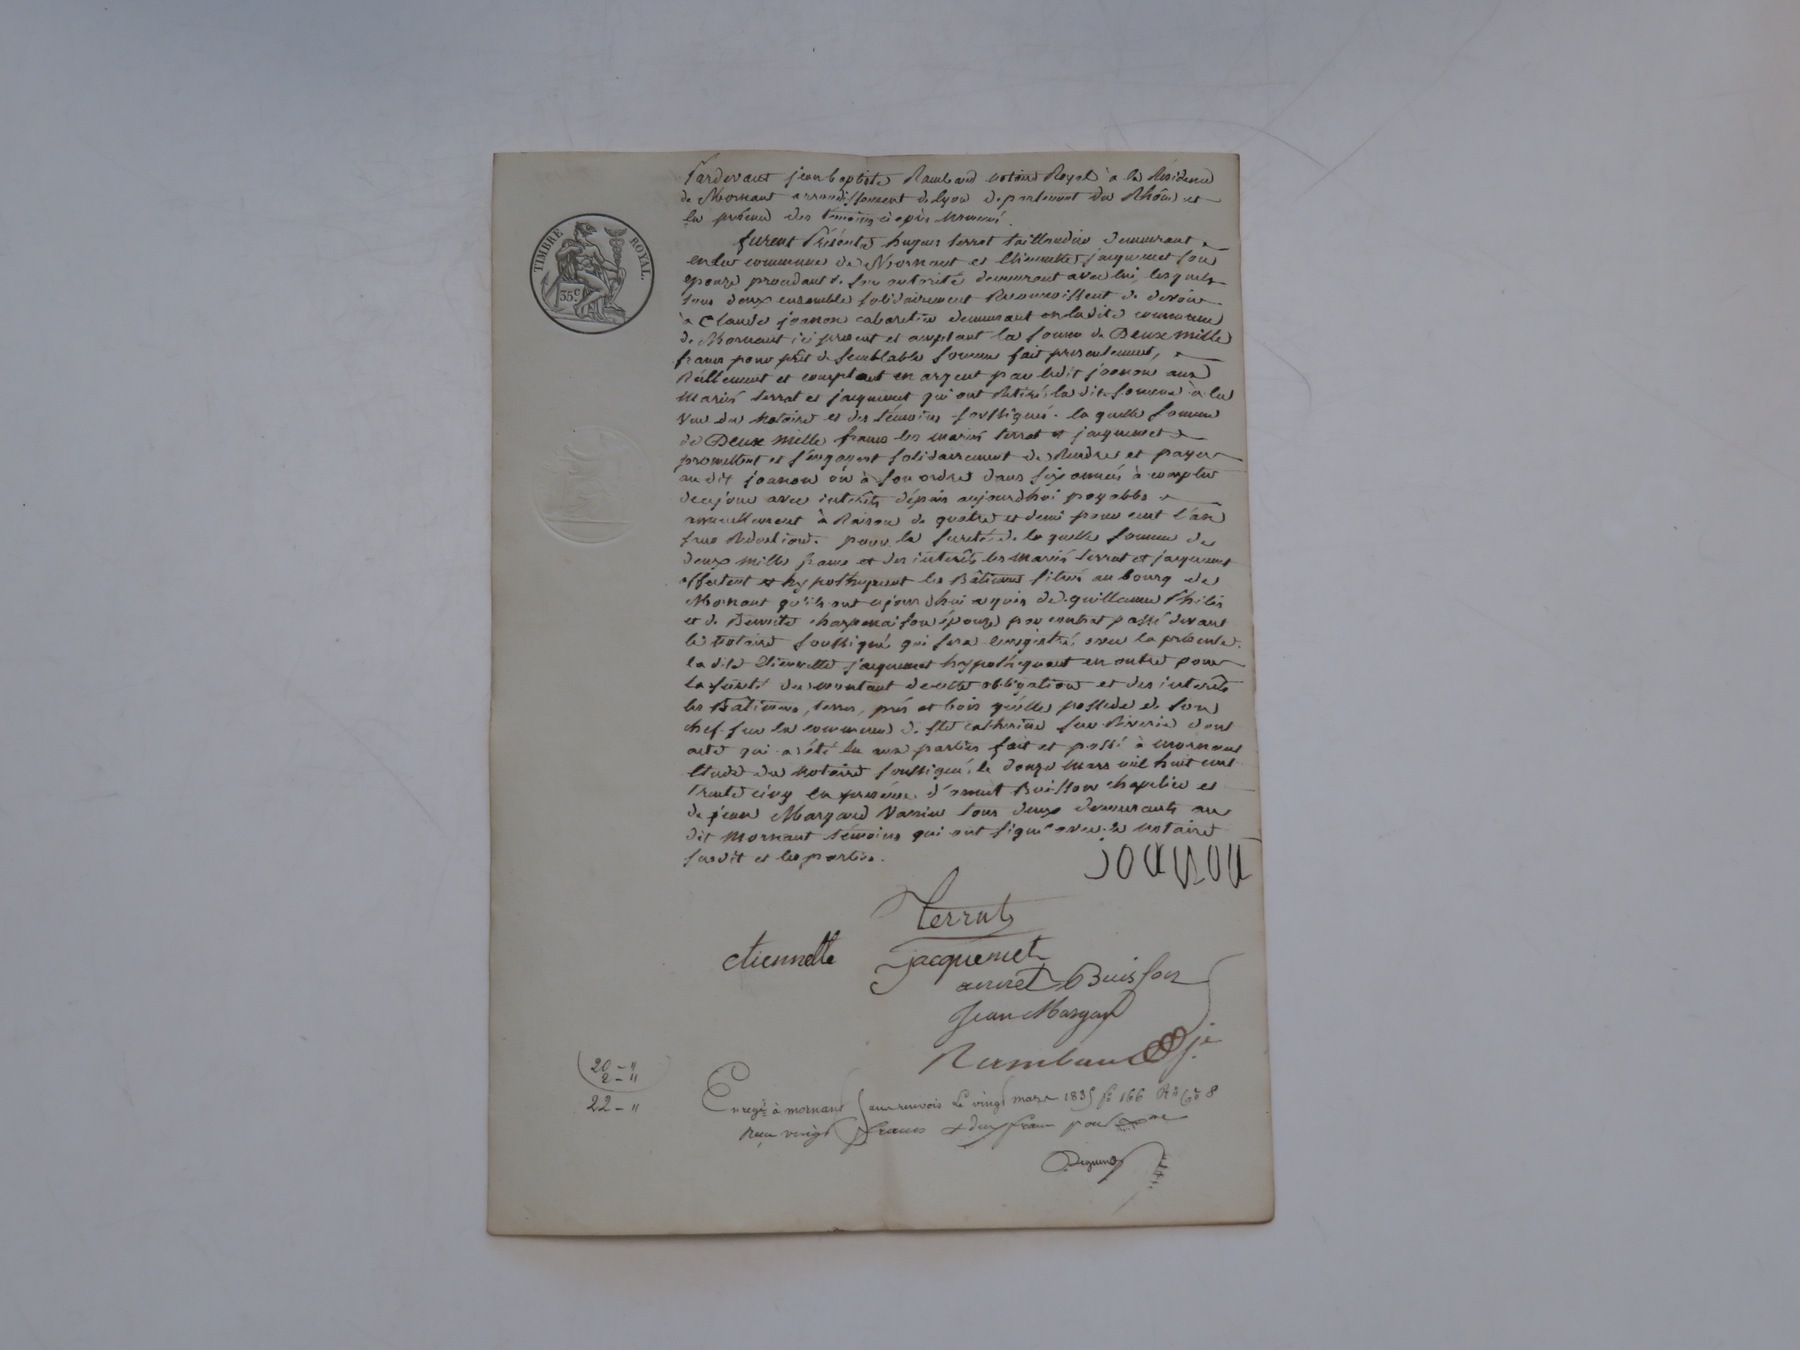 Pardevant jean baptiste Rambaud notaire Royal à la Résidence
de Mornant arrondissement de lyon departement du Rhône et
en présence des témoins ci après nommés.
furent Présents hugues terrat taillandier demeurant
en la commune de Mornant et Etiennette jacquemet son
épouse procédant de son autorité demeurant avec lui, lesquels
tous deux ensemble solidairement Reconnoissent de devoir
à Claude joanon cabaretier demeurant en la dite commune
de Mornant ici présent et acceptant la somme de Deux mille
francs pour prêt de semblable somme fait présentement,
Réellement et comptant en argent par ledit joanon aux
Mariés terrat et jacquemet qui ont Retiré la dite somme à la
vue du Notaire et des témoins soussignés. la quelle somme
de Deux mille francs les mariés terrat et jacquemet
promettent et s'engagent solidairement de Rendre et payer
au dit joanon ou à son ordre dans six années à compter
de ce jour avec intérêts dépuis aujourdhui payables
annuellement à Raison de quatre et demi pour cent l'an
sans Rédaction. pour la sureté de la quelle somme de
deux mille francs et des intérêts les mariés terrat et jacquemet
affectent et hypothèquent les Bâtiments situés au bourg de
Mornant qu'ils ont aujourdhui acquis de guillaume
et de Benoite son épouse par contrat passé devant
le notaire soussigné qui sera enregistré avec la présente.
la dite Etiennette jacquemet hypothèquant en outre pour
la sureté du montant de cette obligation et des intérêts
les Bâtimens, terres, prés et bois qu'elle possède de son
chef sur la commune de Ste catherine sur Riverie dont
acte qui a été lu aux parties fait et passé à mornant
Etude du Notaire soussigné, le douze mars mil huit cent
trente cinq en présence d'annet Buisson chapelier et
de jean Margand Vannier tous deux demeurants au
dit Mornant témoins qui ont signé avec le notaire
susdit et les parties.
joanon
terrat
etiennette jacquemet
annet Buisson
Jean Margand
Rambaud
20 - "
2 - "
22 - "
Enregé à mornant sans renvois le vingt mars 1835 fo 166 Ro Ce 8
Reçu vingt francs & deux francs pour